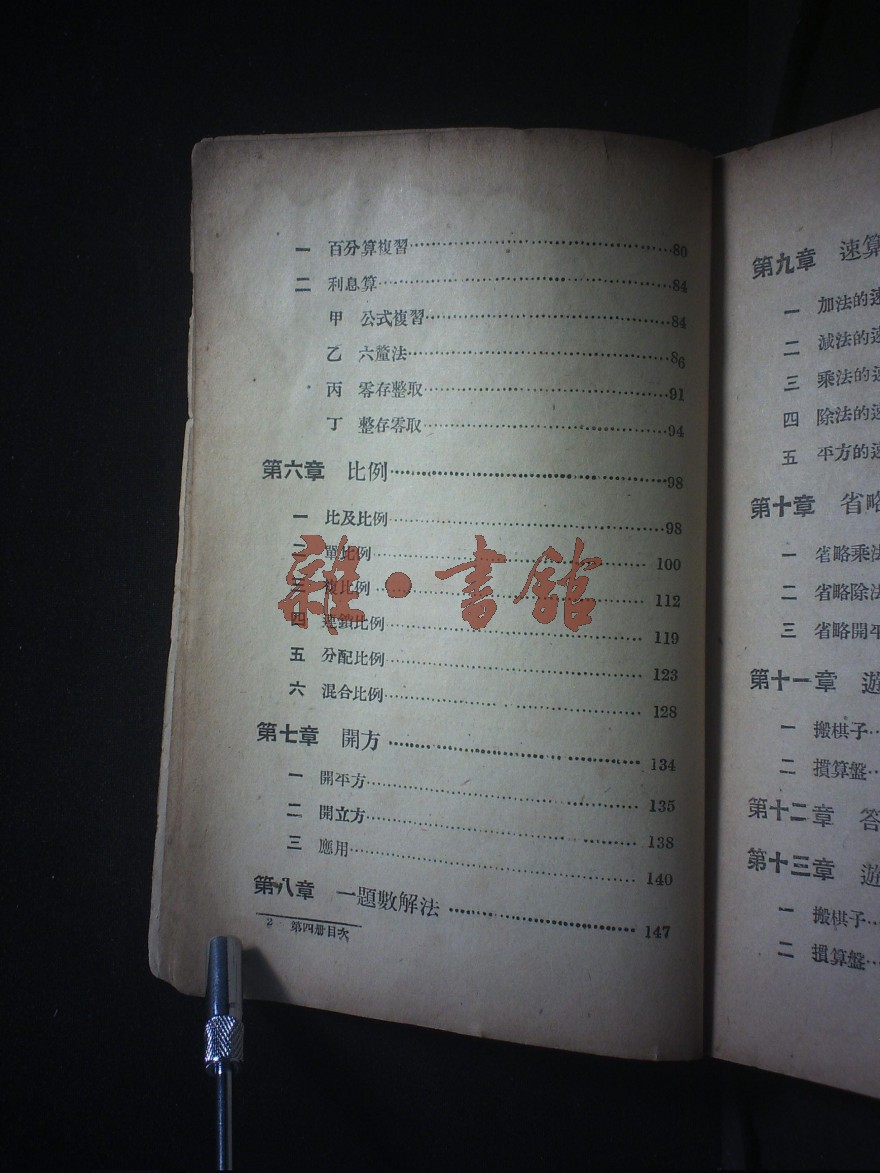 一 百分算複習……80
二 利息算……84
甲 公式複習……84
乙 六釐法……86
丙 零存整取……91
丁 整存零取……94
第六章 比例……98
一 比及比例……98
二 單比例……100
三 複比例……112
四 連鎖比例……119
五 分配比例……123
六 混合比例……128
第七章 開方……134
一 開平方……135
二 開立方……138
三 應用……140
第八章 一題數解法……147
2 第四册目次
雜·書館
第九章 速算
一 加法的速
二 減法的速
三 乘法的速
四 除法的速
五 平方的速
第十章 省略
一 省略乘法
二 省略除法
三 省略開平
第十一章 遊
一 搬棋子…
二 摜算盤…
第十二章 答
第十三章 遊
一 搬棋子…
二 摜算盤…